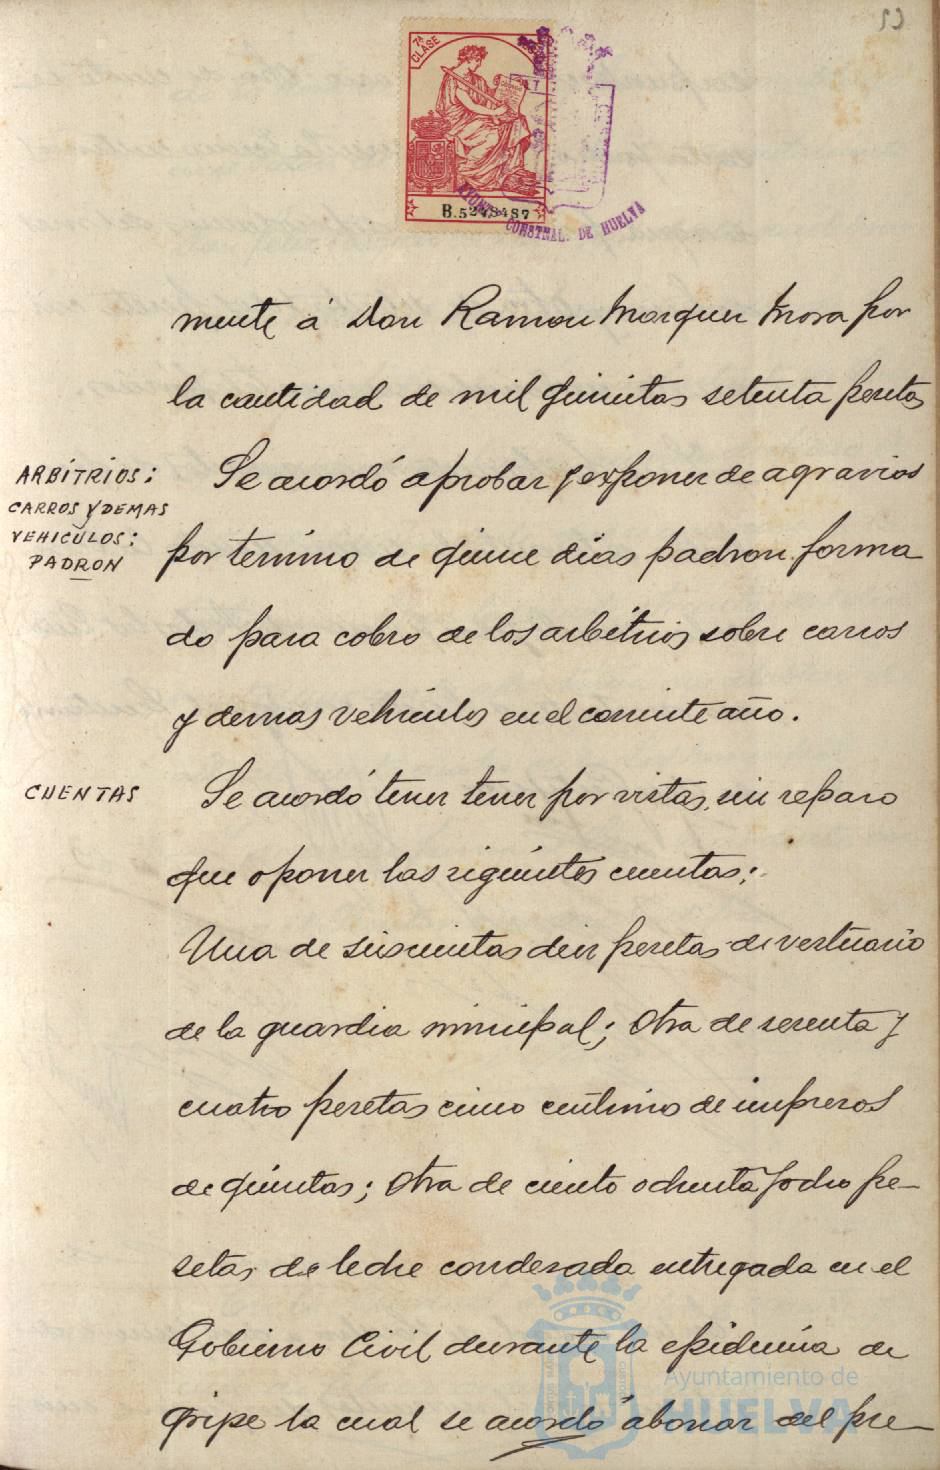 53
7ª CLASE
B.5248487
AYUNTº CONSTNAL. DE HUELVA
mente á Don Ramon Marquez Mora por
la cantidad de mil quinientas setenta pesetas
ARBÍTRIOS:
CARROS Y DEMAS
VEHICULOS:
PADRON
Se acordó aprobar y exponer de agravios
por termino de quince dias padron forma
do para cobro de los arbitrios sobre carros
y demas vehiculos en el corriente año.
CUENTAS
Se acordó tener tener por vistas, sin reparo
que oponer las siguientes cuentas:
Una de seiscientas diez pesetas de vestuario
de la guardia municipal; Otra de sesenta y
cuatro pesetas cinco centimos de impresos
de quintas; Otra de ciento ochenta y ocho pe-
setas de leche condesada entregada en el
Gobierno Civil durante la epidemia de
gripe la cual se acordó abonar del pre-
Ayuntamiento de
HUELVA